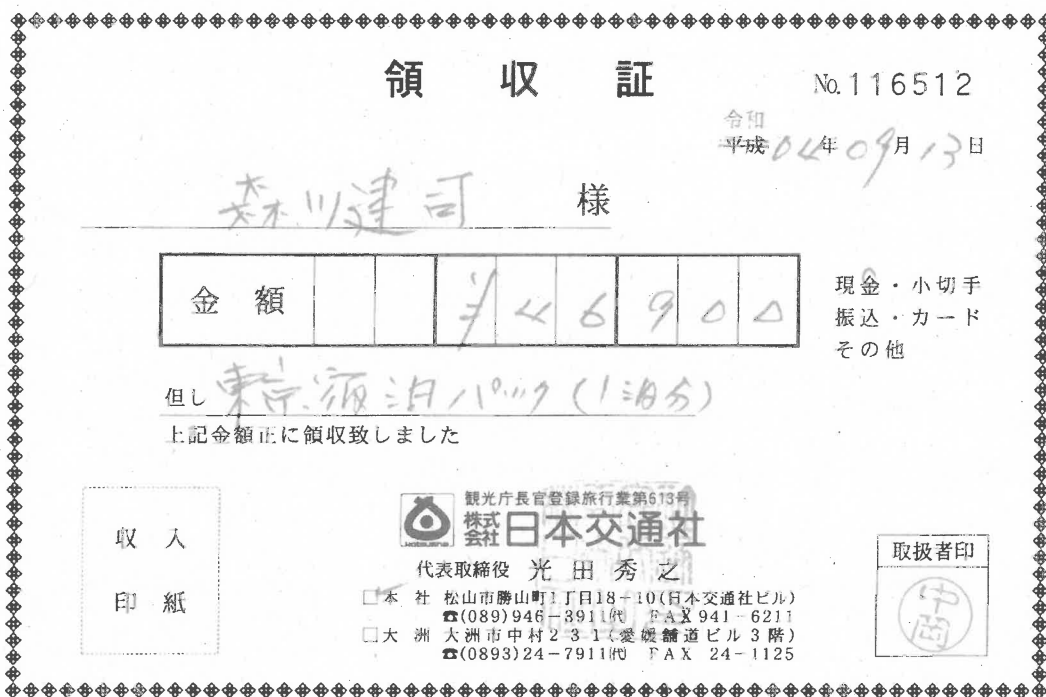 領収証
No.116512
令和
平成 04年 09月 13日
森川建司 様
金額 ¥46900
現金・小切手
振込・カード
その他
但し 東京宿泊パック(1泊分)
上記金額正に領収致しました
収入
印紙
観光庁長官登録旅行業第613号
株式会社日本交通社
代表取締役 光田秀之
□本 社 松山市勝山町1丁目18-10(日本交通社ビル)
☎(089)946-3911㈹ FAX 941-6211
□大 洲 大洲市中村231(愛媛舗道ビル3階)
☎(0893)24-7911㈹ FAX 24-1125
取扱者印
中岡